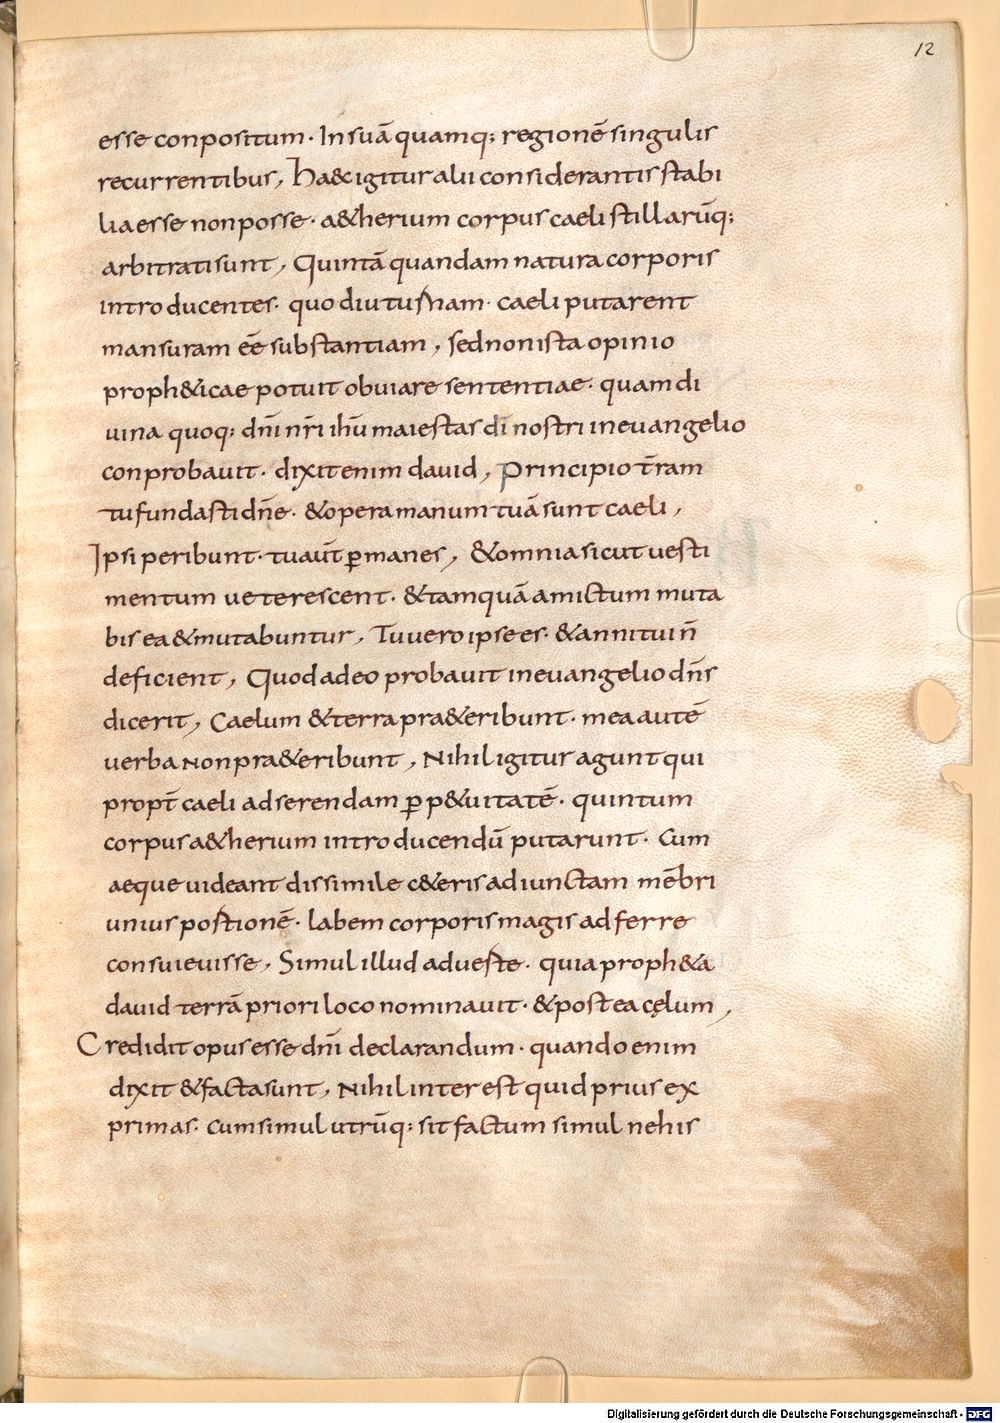 12
esse conpositum · In suā quamq; regionē singulis
recurrentibus, Ha&c igitur alii considerantis stabi
lia esse non posse · a&herium corpus caeli stillarūq;
arbitrati sunt, Quintā quandam natura corporis
introducentes · quo diuturnam · caeli putarent
mansuram ēē substantiam, sed non ista opinio
proph&icae potuit obuiare sententiae · quam di
uina quoq; dn̄i nr̄i ihū maiestas dī nostri in euangelio
conprobauit · dixit enim dauid, Principio t̄ram
tu fundasti dn̄e · & opera manum tuā sunt caeli,
Ipsi peribunt · tu aut̄ ꝑmanes, & omnia sicut uesti
mentum ueterescent · & tamquā amictum muta
bis ea & mutabuntur, Tu uero ipse es · & anni tui n̄
deficient, Quod adeo probauit in euangelio dn̄s
dicerit, Caelum & terra pra&eribunt · mea autē
uerba non pra&eribunt, Nihil igitur agunt qui
propt̄ caeli adserendam ꝑp&uitatē · quintum
corpus a&herium introducendū putarunt · Cum
aeque uideant dissimile c&eris adiunctam mēbri
unius postionē · labem corporis magis adferre
consuieuisse, Simul illud adueste · quia proph&a
dauid terrā priori loco nominauit · & postea cęlum,
Credidit opus esse dn̄i declarandum · quando enim
dixit & facta sunt, Nihil interest quid prius ex
primas · cum simul utrūq; sit factum simul ne his
Digitalisierung gefördert durch die Deutsche Forschungsgemeinschaft - DFG